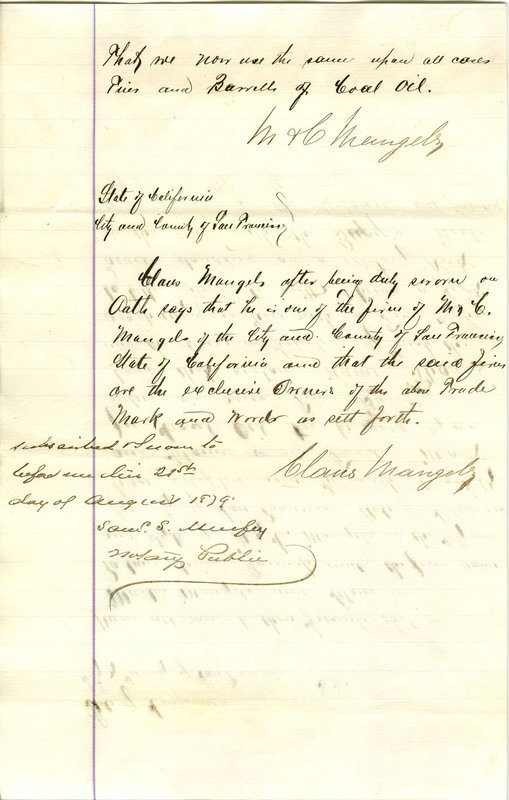 That we now use the same upon all cases
Tins and Barrells of Coal Oil.
M & C Mangels
State of California
City and County of San Francisco
Claus Mangels after being duly sworn on
Oath says that he is one of the firm of M & C.
Mangels of the City and County of San Francisco
State of California and that the said firm
are the exclusive Owners of the above Trade
Mark and Words as sett forth.
Claus Mangels
subscribed & Sworn to
before me this 21st
day of August 1879
Saml. S. Murfey
Notary Public